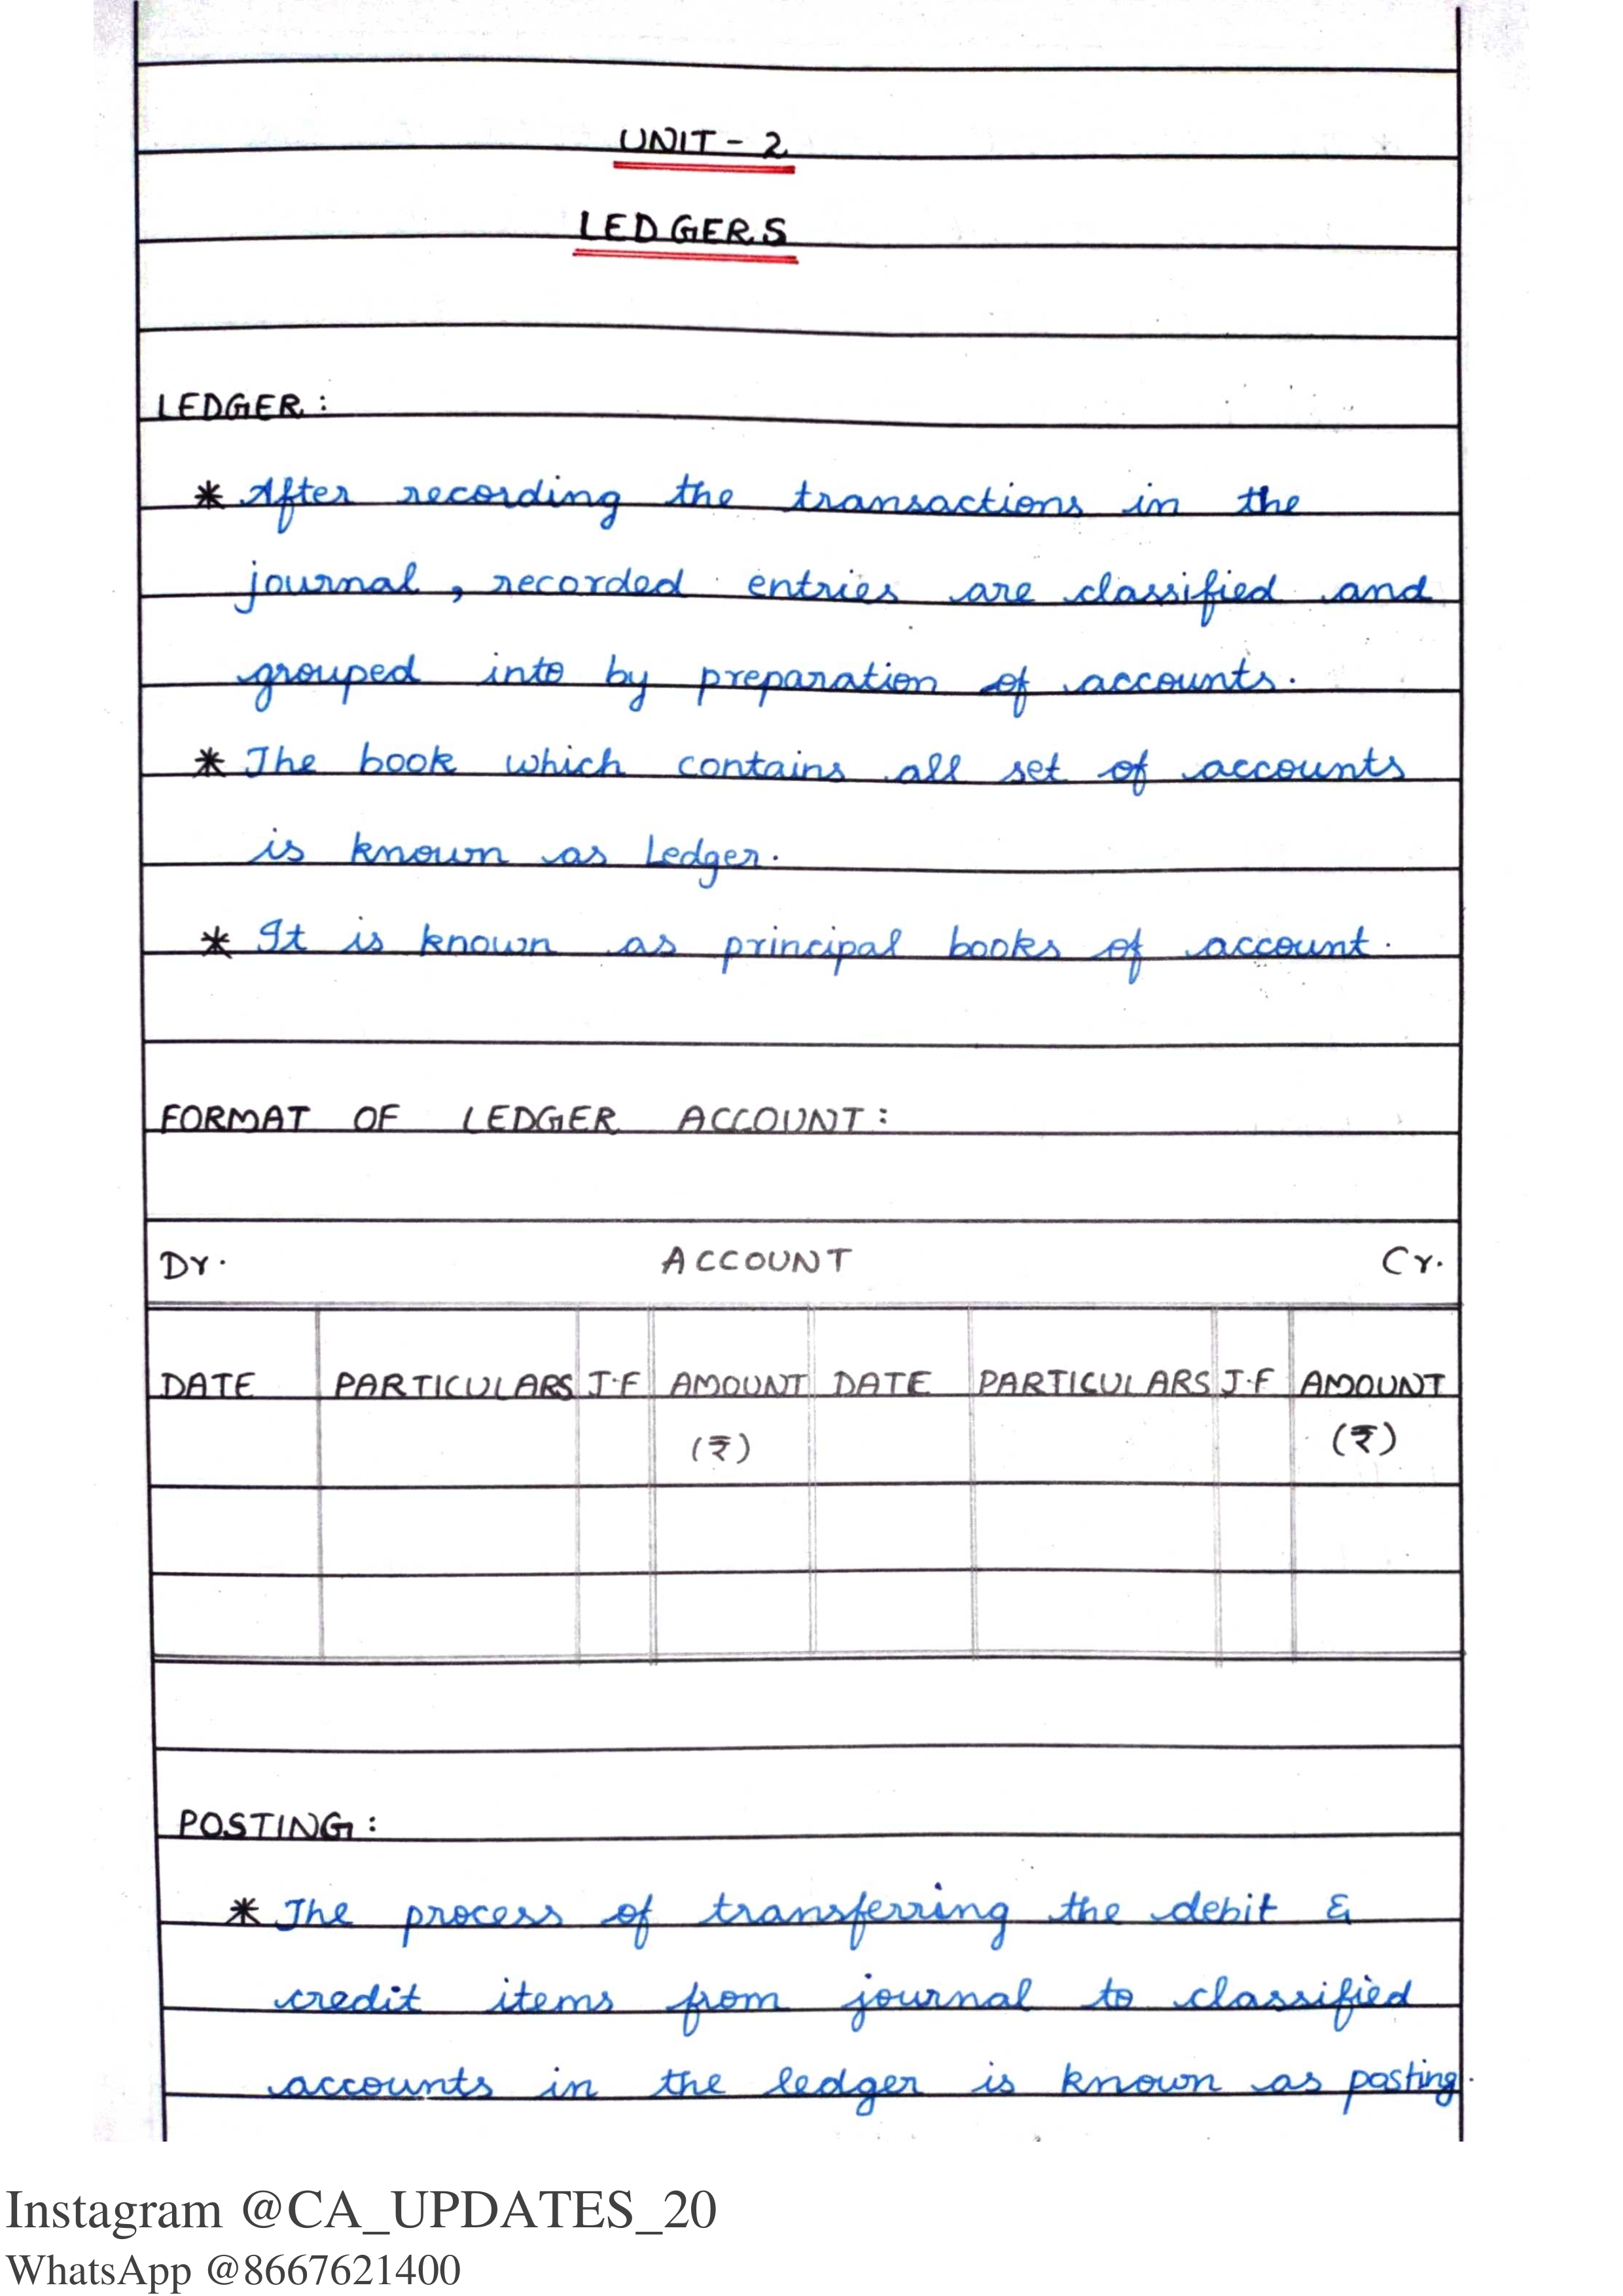 UNIT - 2
LEDGERS
LEDGER :
* After recording the transactions in the
journal, recorded entries are classified and
grouped into by preparation of accounts.
* The book which contains all set of accounts
is known as Ledger.
* It is known as principal books of account.
FORMAT OF LEDGER ACCOUNT :
Dr. ACCOUNT Cr.
DATE PARTICULARS J.F AMOUNT DATE PARTICULARS J.F AMOUNT
(₹) (₹)
POSTING :
* The process of transferring the debit &
credit items from journal to classified
accounts in the ledger is known as posting.
Instagram @CA_UPDATES_20
WhatsApp @8667621400